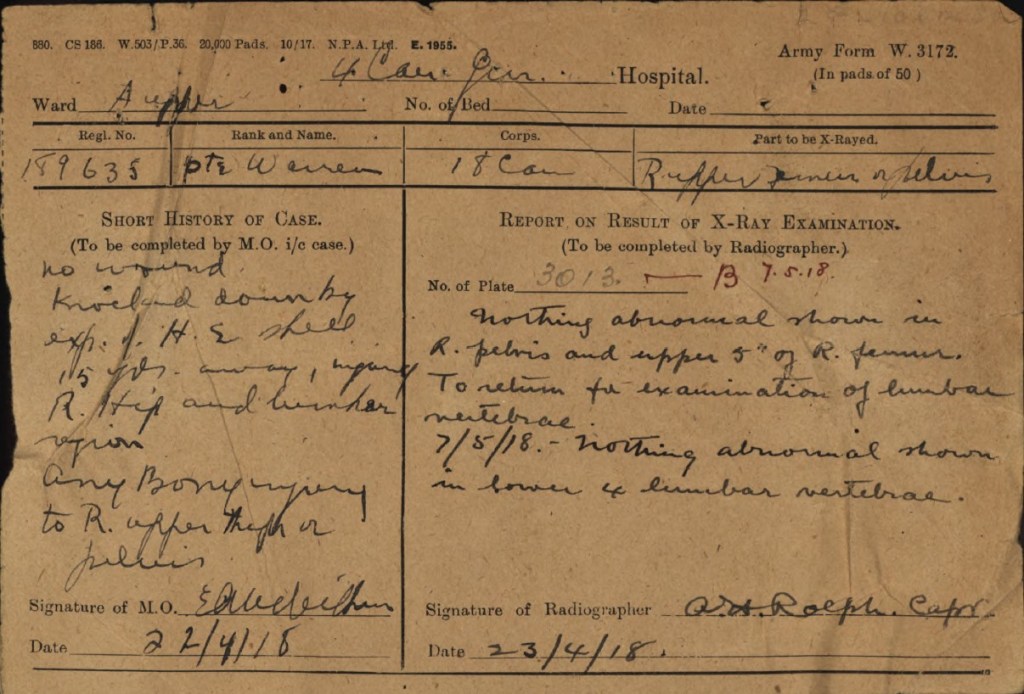 880. CS 186. W.503/P.36. 20,000 Pads. 10/17. N.P.A. Ltd. E. 1955.
Army Form W. 3172.
(In pads of 50)
4 Can. Gen. Hospital.
Ward A upper No. of Bed Date
Regl. No. Rank and Name. Corps. Part to be X-Rayed.
189635 Pte Warren 18 Can R upper femur or pelvis
SHORT HISTORY OF CASE.
(To be completed by M.O. i/c case.)
no wound.
Knocked down by
exp. of H. E shell
15 yds. away, injuring
R. Hip and lumbar
region
Any Bony injury
to R. upper thigh or
pelvis
Signature of M.O.
Date 22/4/18
REPORT ON RESULT OF X-RAY EXAMINATION.
(To be completed by Radiographer.)
No. of Plate 3013. — B 7.5.18.
Nothing abnormal shown in
R. pelvis and upper 5" of R. femur.
To return for examination of lumbar
vertebrae.
7/5/18. - Nothing abnormal shown
in lower 4 lumbar vertebrae.
Signature of Radiographer A.H. Rolph. Capt.
Date 23/4/18.